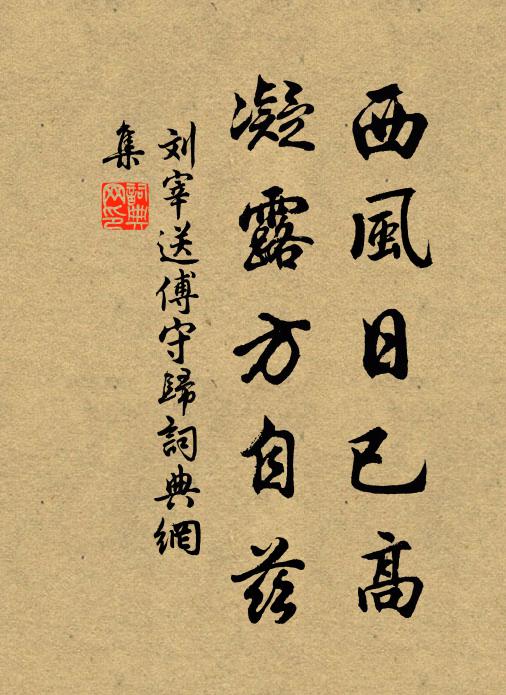 西風日已高
凝露方自兹
刘宰送傅守歸詞典網
集
詞典網印